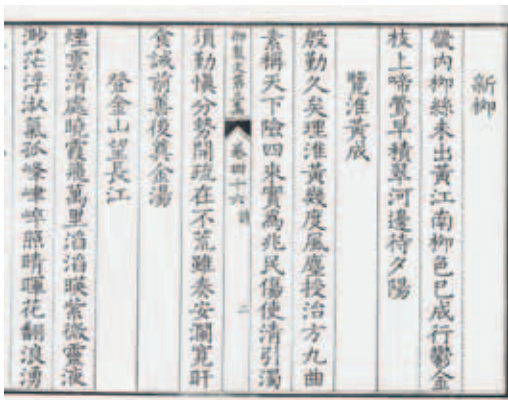 新柳
畿内柳絲未出黃江南柳色已成行鬱金
枝上啼鶯早積翠河邊待夕陽
覽淮黃成
殷勤久矣理淮黃幾度風塵授治方九曲
素稱天下險四來實爲兆民傷使清引濁
卷四十六 詩 二
須勤慎分勢開疏在不荒雖奏安瀾寬旰
食誠前善後奠金湯
登金山望長江
煙雲清處曉霞飛萬里滔滔暎紫微靈液
渺茫浮淑氣孤峰崒崪照晴暉花翻浪湧